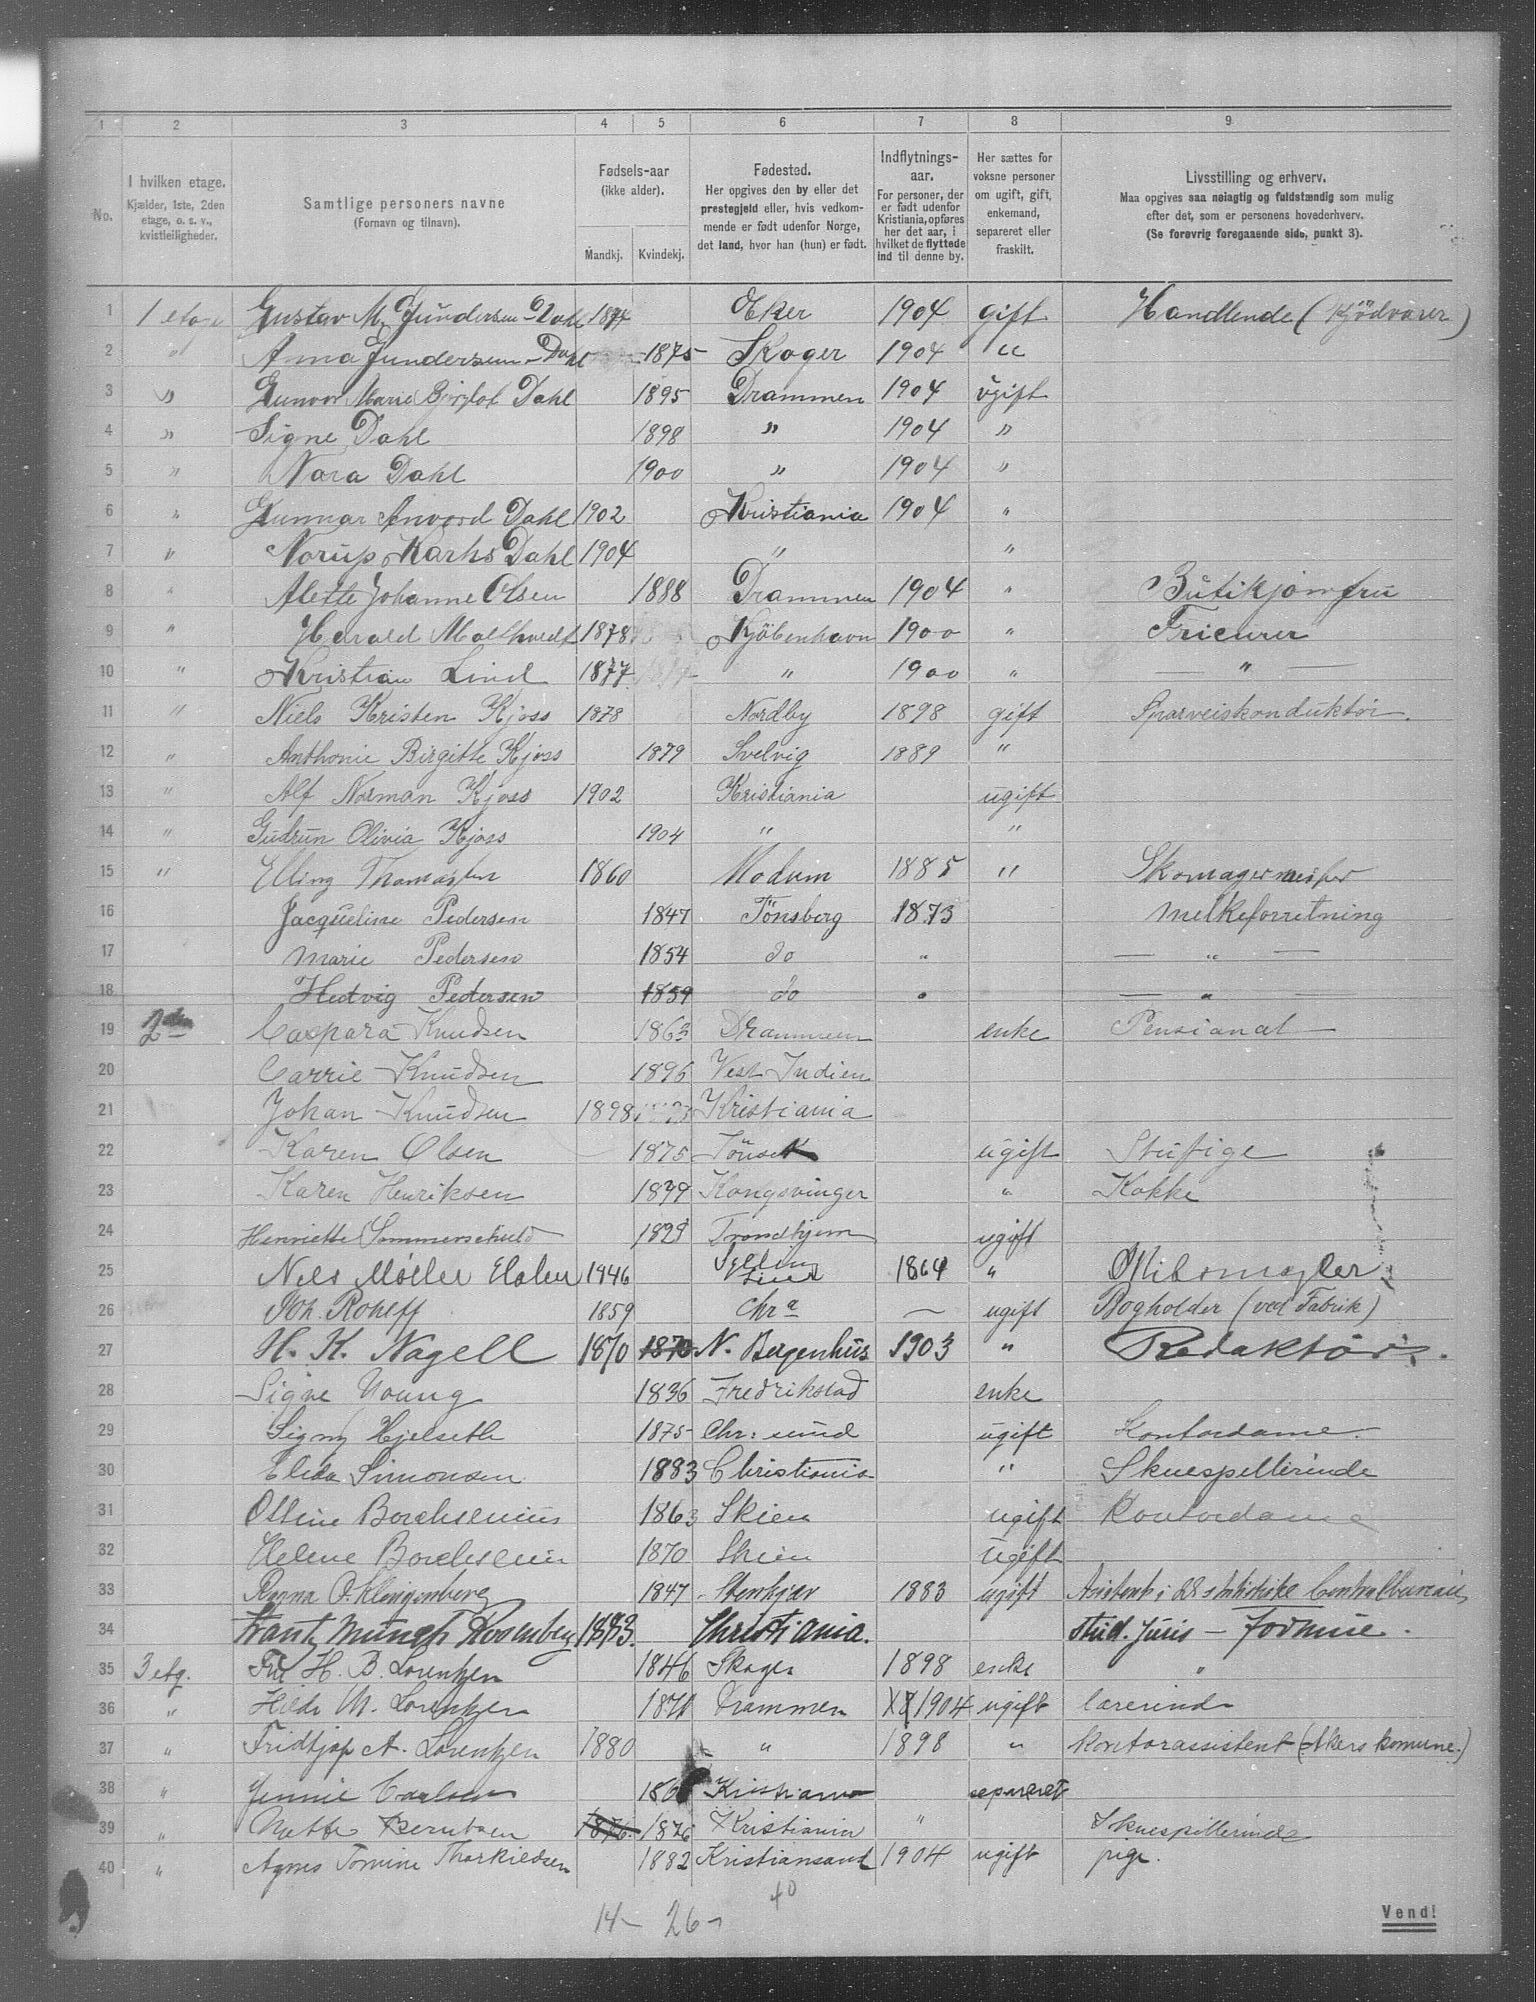 1 2 3 4 5 6 7 8 9
No.
I hvilken etage.
Kjælder, 1ste, 2den
etage, o. s. v.,
kvistleiligheder.
Samtlige personers navne
(Fornavn og tilnavn).
Fødsels-aar
(ikke alder).
Mandkj. Kvindekj.
Fødested.
Her opgives den by eller det
prestegjeld eller, hvis vedkom-
mende er født udenfor Norge,
det land, hvor han (hun) er født.
Indflytnings-
aar.
For personer, der
er født udenfor
Kristiania, opføres
her det aar, i
hvilket de flyttede
ind til denne by.
Her sættes for
voksne personer
om ugift, gift,
enkemand,
separeret eller
fraskilt.
Livsstilling og erhverv.
Maa opgives saa nøiagtig og fuldstændig som mulig
efter det, som er personens hovederhverv.
(Se forøvrig foregaaende side, punkt 3).
1 1 etage Gustav M. Gundersen-Dahl Eker 1904 gift Handlende (Kjödvarer)
2 " Anna Gundersen-Dahl 1875 Skoger 1904 "
3 " Gunvor Marie Dahl 1895 Drammen 1904 ugift
4 " Signe Dahl 1898 " 1904 "
5 " Nora Dahl 1900 " 1904 "
6 " Gunnar Dahl 1902 Kristiania 1904 "
7 " Norup Dahl 1904 " "
8 " Johanne Olsen 1888 Drammen 1904 " Butikjomfru
9 " Harald 1878 Kjöbenhavn 1900 " Fricurer
10 " Kristian Lind 1877 " 1900 " — " —
11 " Niels Kristen Kjoss 1878 Nordby 1898 gift Sparveiskonduktör.
12 " Anthonie Birgitte Kjoss 1879 Svelvig 1889 "
13 " Alf Norman Kjoss 1902 Kristiania ugift
14 " Gudrun Olivia Kjoss 1904 " "
15 " Elling Thomassen 1860 Modum 1885 " Skomagermester
16 Jacqueline Pedersen 1847 Tönsberg 1873 Melkeforretning
17 Marie Pedersen 1854 do " — " —
18 Hedvig Pedersen 1859 do " — " —
19 2den Caspara Knudsen 1863 Drammen enke Pensionat —
20 Carrie Knudsen 1896 Vest Indien
21 Johan Knudsen 1898 Kristiania
22 Karen Olsen 1875 ugift Stupige
23 Karen Henriksen 1879 Kongsvinger " Kokke
24 Henriette Sommerschield 1829 Trondhjem ugift
25 Nels Møller 1846 1864 "
26 Joh. Roheff 1859 Chra — ugift Bogholder (ved Fabrik)
27 H. K. Nagell 1870 1870 N. Bergenhus 1903 " Redaktör.
28 Signe Young 1836 Fredrikstad enke
29 Signy Hjelseth 1875 Chr: sund ugift Kontordame.
30 Elida Simonsen 1883 Christiania " Skuespillerinde
31 Ottine Borchsenius 1863 Skien ugift Kontordame
32 Helene Borchsenius 1870 Skien ugift
33 O. Klingenberg 1847 Stenkjær 1883 ugift Assistent i det statistiske Centralbureau
34 Frantz Münch Rosenberg 1883. Christiania. stud. juris — Formue.
35 3 etg. Fru H. B. Lorentzen 1846 Skoger 1898 enke "
36 " Hilda M. Lorentzen Drammen 1904 ugift lærerinde
37 " Fridtjof A. Lorentzen 1880 " 1898 " Kontorassistent (Akers komune.)
38 " Jennie Carlsen Kristiania separeret
39 " Berntsen 1876. 1876 Kristiania " Skuespillerinde
40 " Agnes Tomine Thorkildsen 1882 Kristiansand 1904 ugift pige.
14 — 26 — 40
Vend!